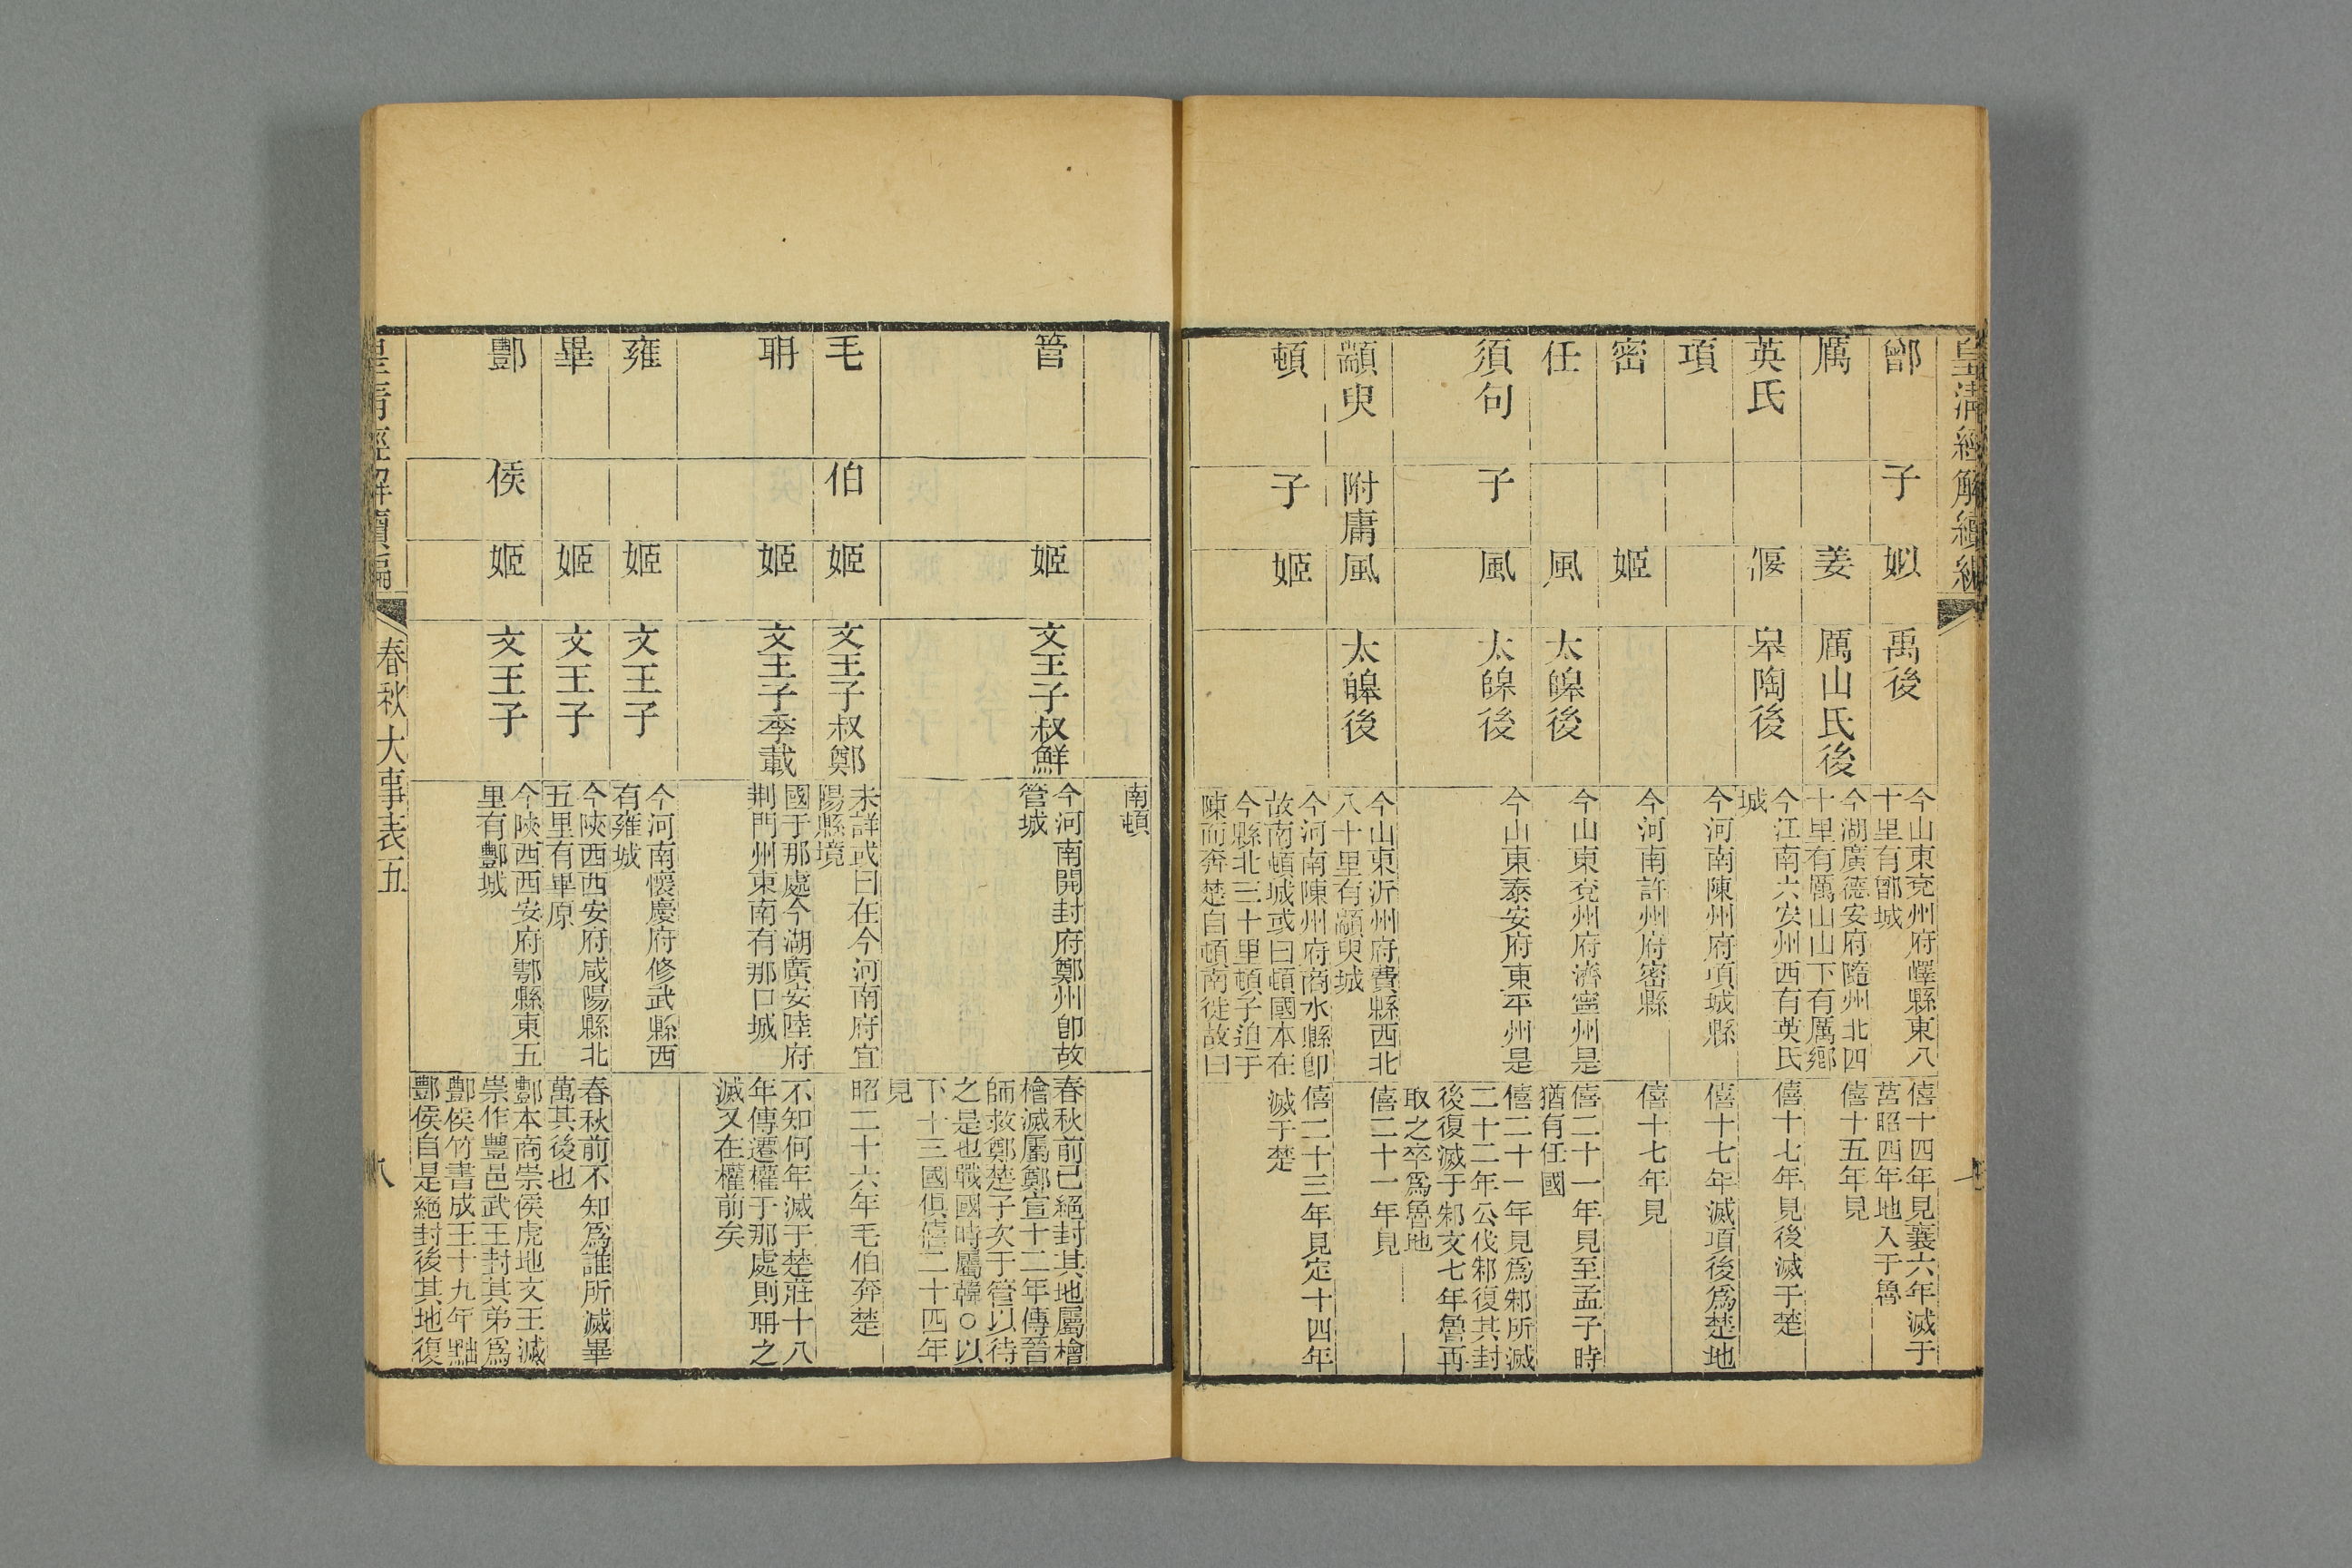 皇清經解續編
七
鄫
子
姒
禹後
今山東兗州府嶧縣東八
十里有鄫城
僖十四年見襄六年滅于
莒昭四年地入于魯
厲
姜
厲山氏後
今湖廣德安府隨州北四
十里有厲山山下有厲鄉
僖十五年見
英氏
偃
皋陶後
今江南六安州西有英氏
城
僖十七年見後滅于楚
項
今河南陳州府項城縣
僖十七年滅項後爲楚地
密
姬
今河南許州府密縣
僖十七年見
任
風
太皞後
今山東兗州府濟寧州是
僖二十一年見至孟子時
猶有任國
須句
子
風
太皞後
今山東泰安府東平州是
僖二十一年見爲邾所滅
二十二年公伐邾復其封
後復滅于邾文七年魯再
取之卒爲魯地
顓臾
附庸
風
太皞後
今山東沂州府費縣西北
八十里有顓臾城
僖二十一年見
頓
子
姬
今河南陳州府商水縣卽
故南頓城或曰頓國本在
今縣北三十里頓子迫于
陳而奔楚自頓南徙故曰
僖二十三年見定十四年
滅于楚
南頓
管
姬
文王子叔鮮
今河南開封府鄭州卽故
管城
春秋前已絕封其地屬檜
檜滅屬鄭宣十二年傳晉
師救鄭楚子次于管以待
之是也戰國時屬韓○以
下十三國俱僖二十四年
見
毛
伯
姬
文王子叔鄭
未詳或曰在今河南府宜
陽縣境
昭二十六年毛伯奔楚
聃
姬
文王子季載
國于那處今湖廣安陸府
荆門州東南有那口城
不知何年滅于楚莊十八
年傳遷權于那處則聃之
滅又在權前矣
雍
姬
文王子
今河南懷慶府修武縣西
有雍城
畢
姬
文王子
今陝西西安府咸陽縣北
五里有畢原
春秋前不知爲誰所滅畢
萬其後也
酆
侯
姬
文王子
今陝西西安府鄠縣東五
里有酆城
酆本商崇侯虎地文王滅
崇作豐邑武王封其弟爲
酆侯竹書成王十九年黜
酆侯自是絕封後其地復
皇清經解續編
春秋大事表五
八